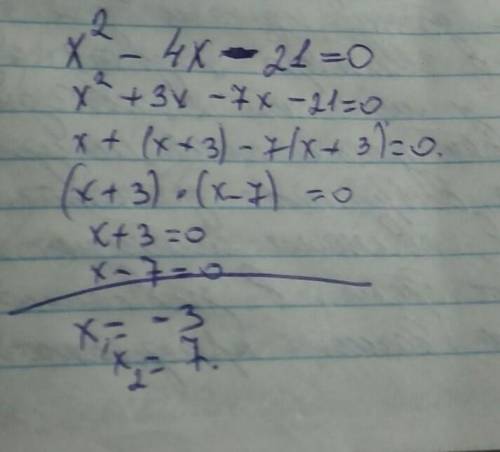 x² - 4x - 21=0
x² + 3x - 7x - 21=0
x + (x+3) - 7(x+3)=0.
(x+3) · (x-7) = 0
x+3=0
x-7=0
x₁= -3
x₂= 7.